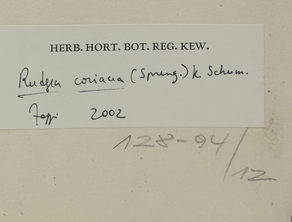 HERB. HORT. BOT. REG. KEW.
Rudgea coriacea (Spreng.) K. Schum.
Zappi 2002
128-94/12